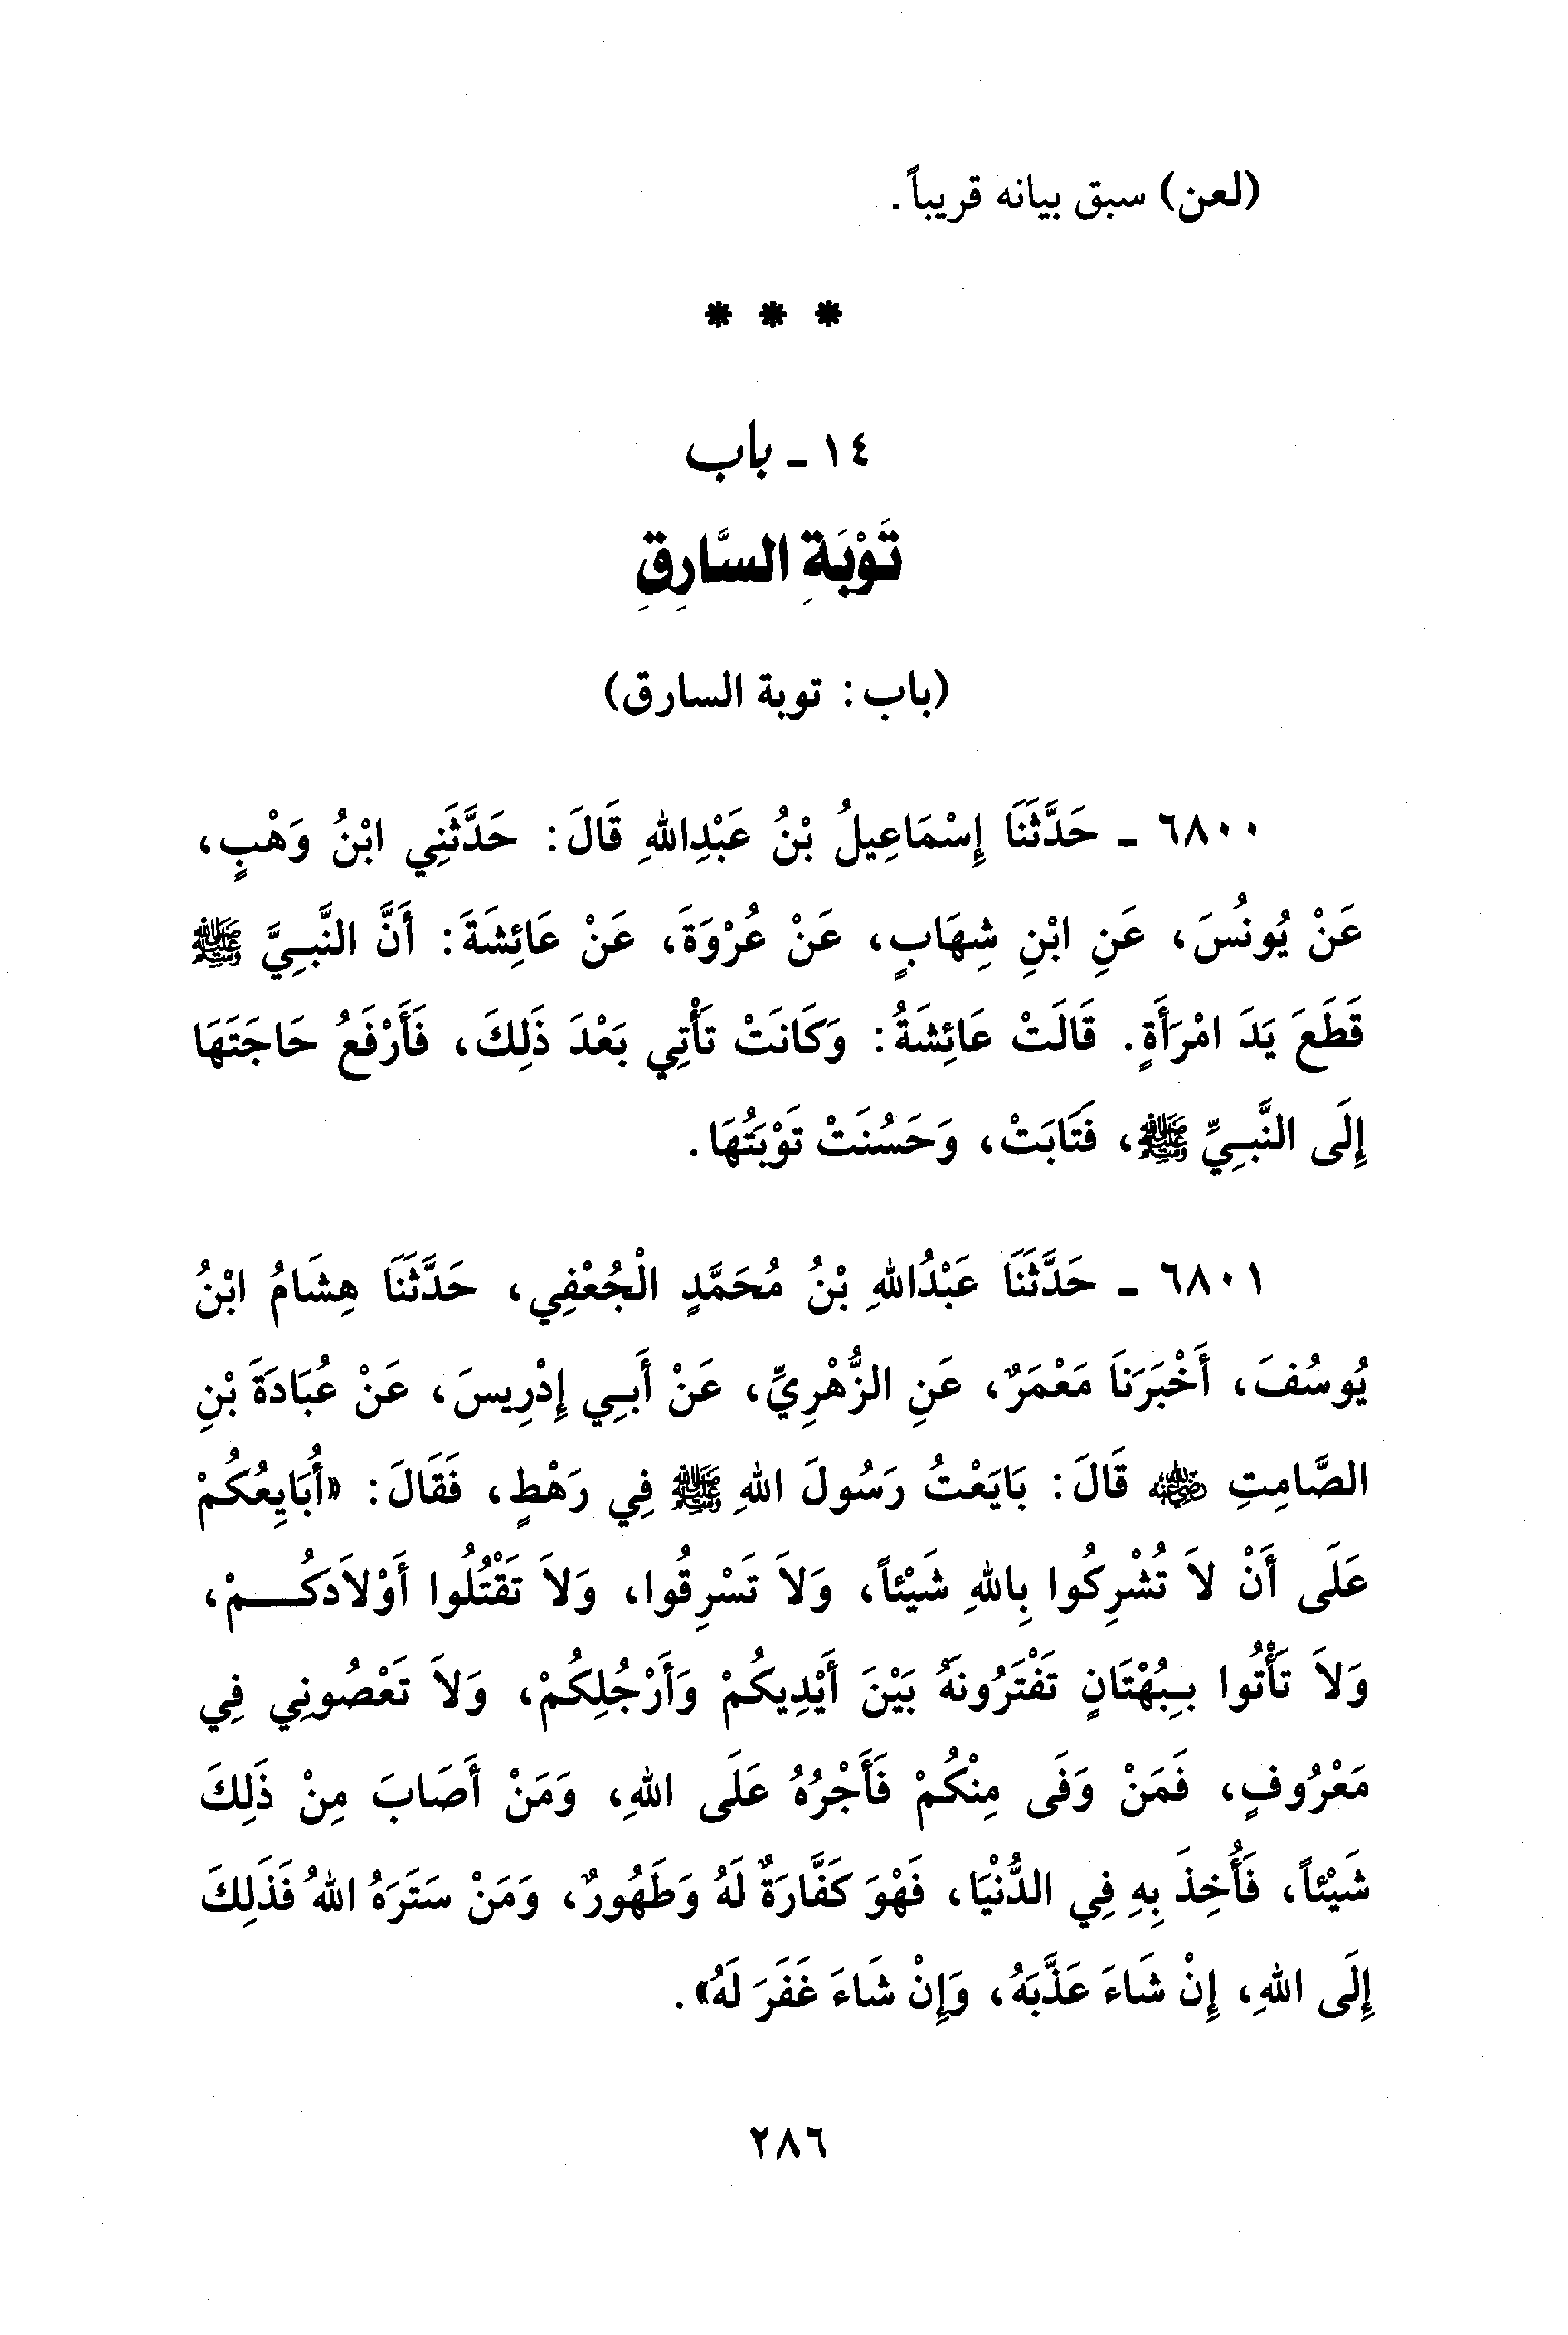 (لعن) سبق بيانه قريباً.
* * *
١٤ - باب
تَوْبَةِ السَّارِقِ
(باب: توبة السارق)
٦٨٠٠ - حَدَّثَنَا إِسْمَاعِيلُ بْنُ عَبْدِاللهِ قَالَ: حَدَّثَنِي ابْنُ وَهْبٍ،
عَنْ يُونُسَ، عَنِ ابْنِ شِهَابٍ، عَنْ عُرْوَةَ، عَنْ عَائِشَةَ: أَنَّ النَّبِيَّ ﷺ
قَطَعَ يَدَ امْرَأَةٍ. قَالَتْ عَائِشَةُ: وَكَانَتْ تَأْتِي بَعْدَ ذَلِكَ، فَأَرْفَعُ حَاجَتَهَا
إِلَى النَّبِيِّ ﷺ، فَتَابَتْ، وَحَسُنَتْ تَوْبَتُهَا.
٦٨٠١ - حَدَّثَنَا عَبْدُاللهِ بْنُ مُحَمَّدٍ الْجُعْفِي، حَدَّثَنَا هِشَامُ ابْنُ
يُوسُفَ، أَخْبَرَنَا مَعْمَرٌ، عَنِ الزُّهْرِيِّ، عَنْ أَبِي إِدْرِيسَ، عَنْ عُبَادَةَ بْنِ
الصَّامِتِ ﵁ قَالَ: بَايَعْتُ رَسُولَ اللهِ ﷺ فِي رَهْطٍ، فَقَالَ: «أُبَايِعُكُمْ
عَلَى أَنْ لاَ تُشْرِكُوا بِاللهِ شَيْئاً، وَلاَ تَسْرِقُوا، وَلاَ تَقْتُلُوا أَوْلاَدَكُمْ،
وَلاَ تَأْتُوا بِبُهْتَانٍ تَفْتَرُونَهُ بَيْنَ أَيْدِيكُمْ وَأَرْجُلِكُمْ، وَلاَ تَعْصُونِي فِي
مَعْرُوفٍ، فَمَنْ وَفَى مِنْكُمْ فَأَجْرُهُ عَلَى اللهِ، وَمَنْ أَصَابَ مِنْ ذَلِكَ
شَيْئاً، فَأُخِذَ بِهِ فِي الدُّنْيَا، فَهْوَ كَفَّارَةٌ لَهُ وَطَهُورٌ، وَمَنْ سَتَرَهُ اللهُ فَذَلِكَ
إِلَى اللهِ، إِنْ شَاءَ عَذَّبَهُ، وَإِنْ شَاءَ غَفَرَ لَهُ».
٢٨٦